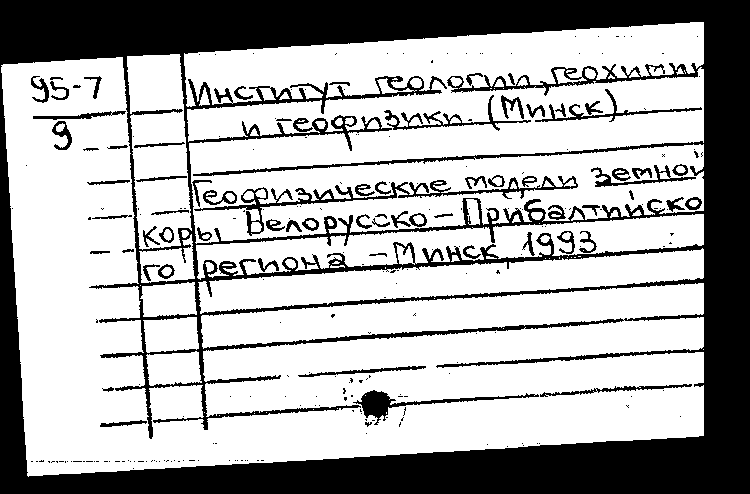 95-7
9
Институт геологии, геохимии
и геофизики. (Минск).
Геофизические модели земной
коры Белорусско-Прибалтийско
го региона - Минск, 1993